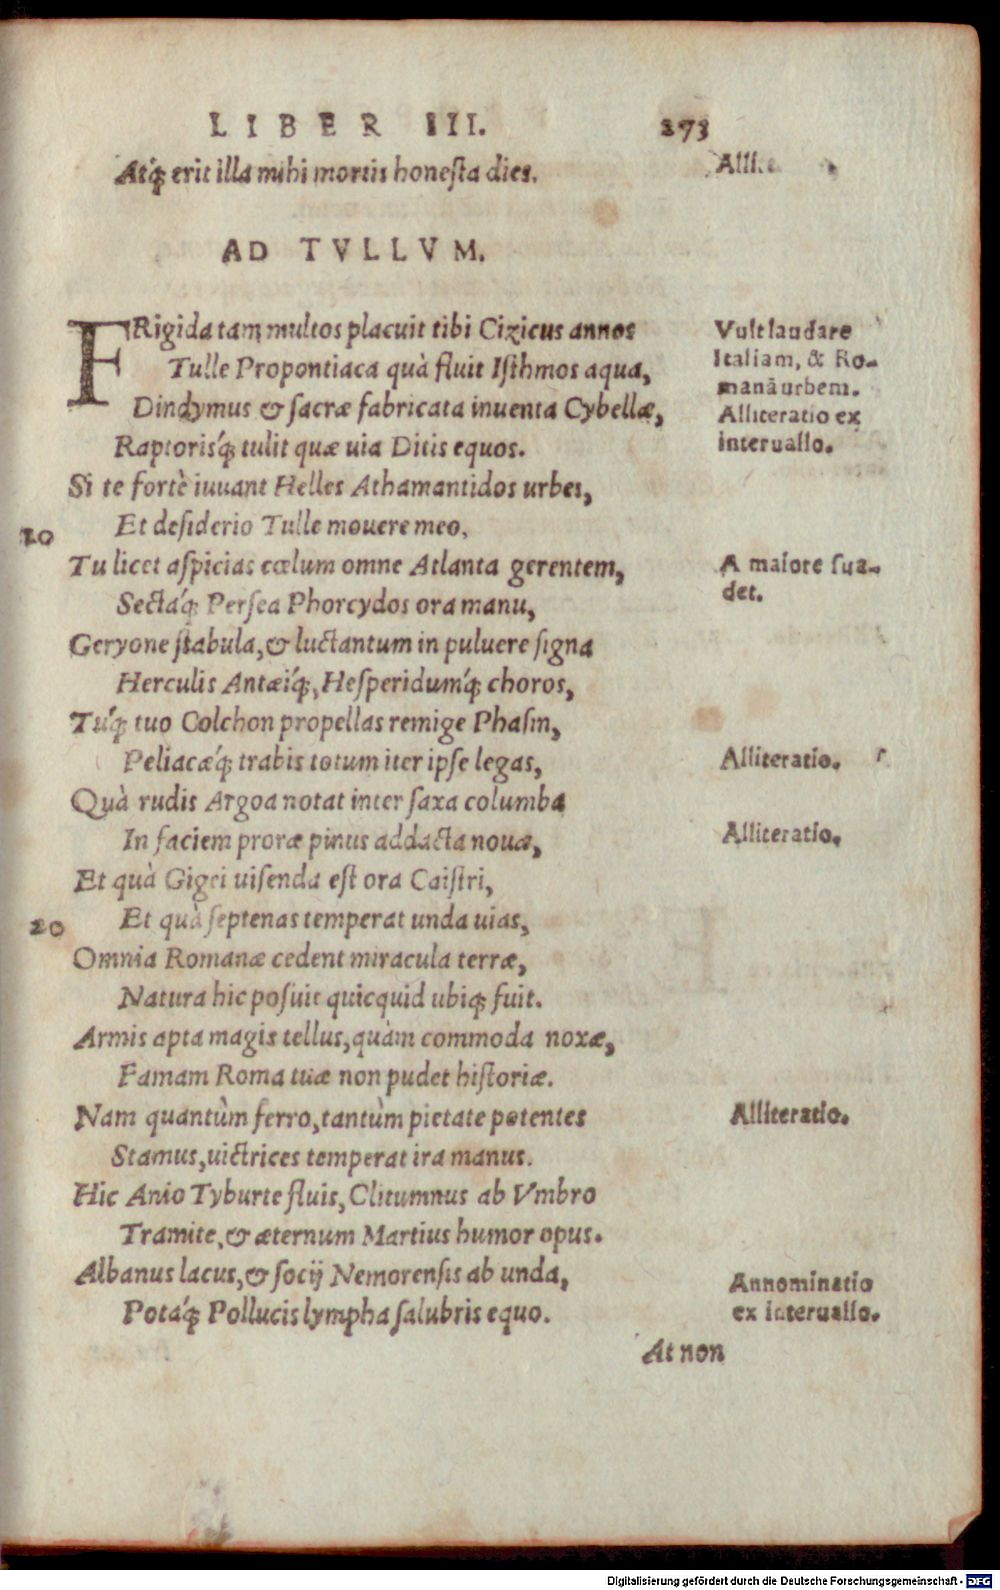 LIBER III. 273
Atq́; erit illa mihi mortis honeſta dies.
AD TVLLVM.
FRigida tam multos placuit tibi Cizicus annos
Vult laudare
Tulle Propontiaca quà fluit Iſthmos aqua,
Italiam, & Ro-
manā urbem.
Dindymus & ſacræ fabricata inuenta Cybellæ,
Alliteratio ex
Raptorisq́; tulit quæ uia Ditis equos.
interuallo.
Si te fortè iuuant Helles Athamantidos urbes,
Et deſiderio Tulle mouere meo,
10
Tu licet aſpicias cœlum omne Atlanta gerentem,
A maiore ſua-
Sectaq́; Perſea Phorcydos ora manu,
det.
Geryone ſtabula, & luctantum in puluere ſigna
Herculis Antæiq́;, Heſperidumq́; choros,
Tuq́; tuo Colchon propellas remige Phaſin,
Peliacæq́; trabis totum iter ipſe legas,
Alliteratio.
Quà rudis Argoa notat inter ſaxa columba
In faciem proræ pinus addacta nouæ,
Alliteratio.
Et quà Gigei uiſenda eſt ora Caiſtri,
Et quà ſeptenas temperat unda uias,
20
Omnia Romanæ cedent miracula terræ,
Natura hic poſuit quicquid ubiq; fuit.
Armis apta magis tellus, quàm commoda noxæ,
Famam Roma tuæ non pudet hiſtoriæ.
Nam quantùm ferro, tantùm pietate potentes
Alliteratio.
Stamus, uictrices temperat ira manus.
Hic Anio Tyburte fluis, Clitumnus ab Vmbro
Tramite, & æternum Martius humor opus.
Albanus lacus, & ſocij Nemorenſis ab unda,
Annominatio
Potaq́; Pollucis lympha ſalubris equo.
ex interuallo.
At non
Digitalisierung gefördert durch die Deutsche Forschungsgemeinschaft - DFG